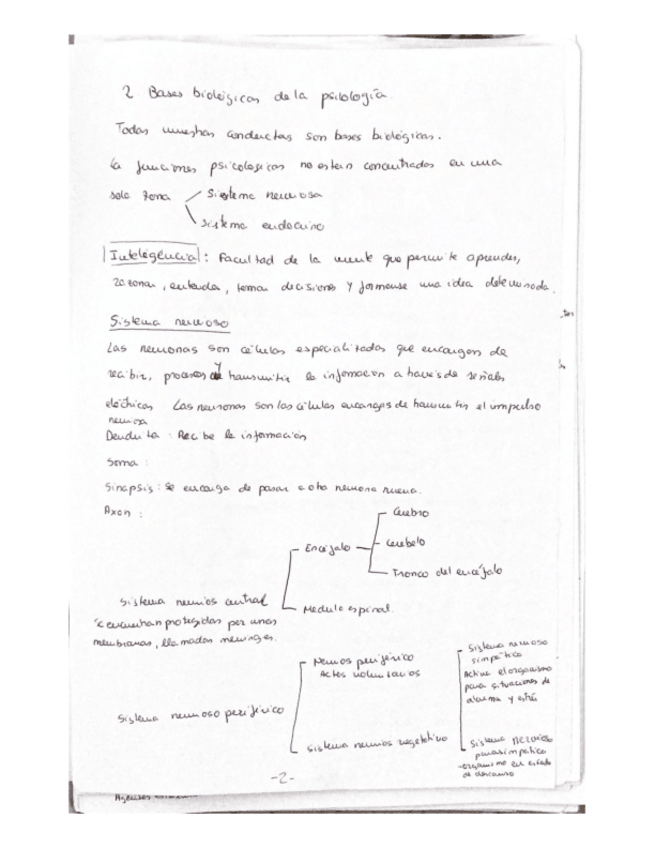 2 Bases biológicas de la psicología.
Todas nuestras conductas son bases biológicas.
la funciones psicologicas no estan concentradas en una
sola zona
Sistema nerviosa
sistema endocrino
Inteligencia: Facultad de la mente que permite aprender,
razonar, entender, tomar decisiones y formarse una idea determinada.
Sistema nervioso
Las neuronas son células especializadas que encargan de
recibir, procesar y transmitir la información a través de señales
eléctricas Las neuronas son las células encargas de transmitir el impulso
nerviosa
Dendrita : Recibe la información
Soma :
Sinapsis : se encarga de pasar a otra neurona nueva.
Axon :
Cerebro
Encéfalo
Cerebelo
Tronco del encéfalo
Sistema nervios central
Medula espinal.
se encuentran protegidas por unas
membranas, llamadas meninges.
Sistema nervioso periférico
Nervios periférico
Actos voluntarios
Sistema nervios vegetativo
Sistema nervioso
simpático
Activa el organismo
para situaciones de
alarma y estrés
Sistema nervioso
parasimpatico
-organismo en estado
de descanso
-2-